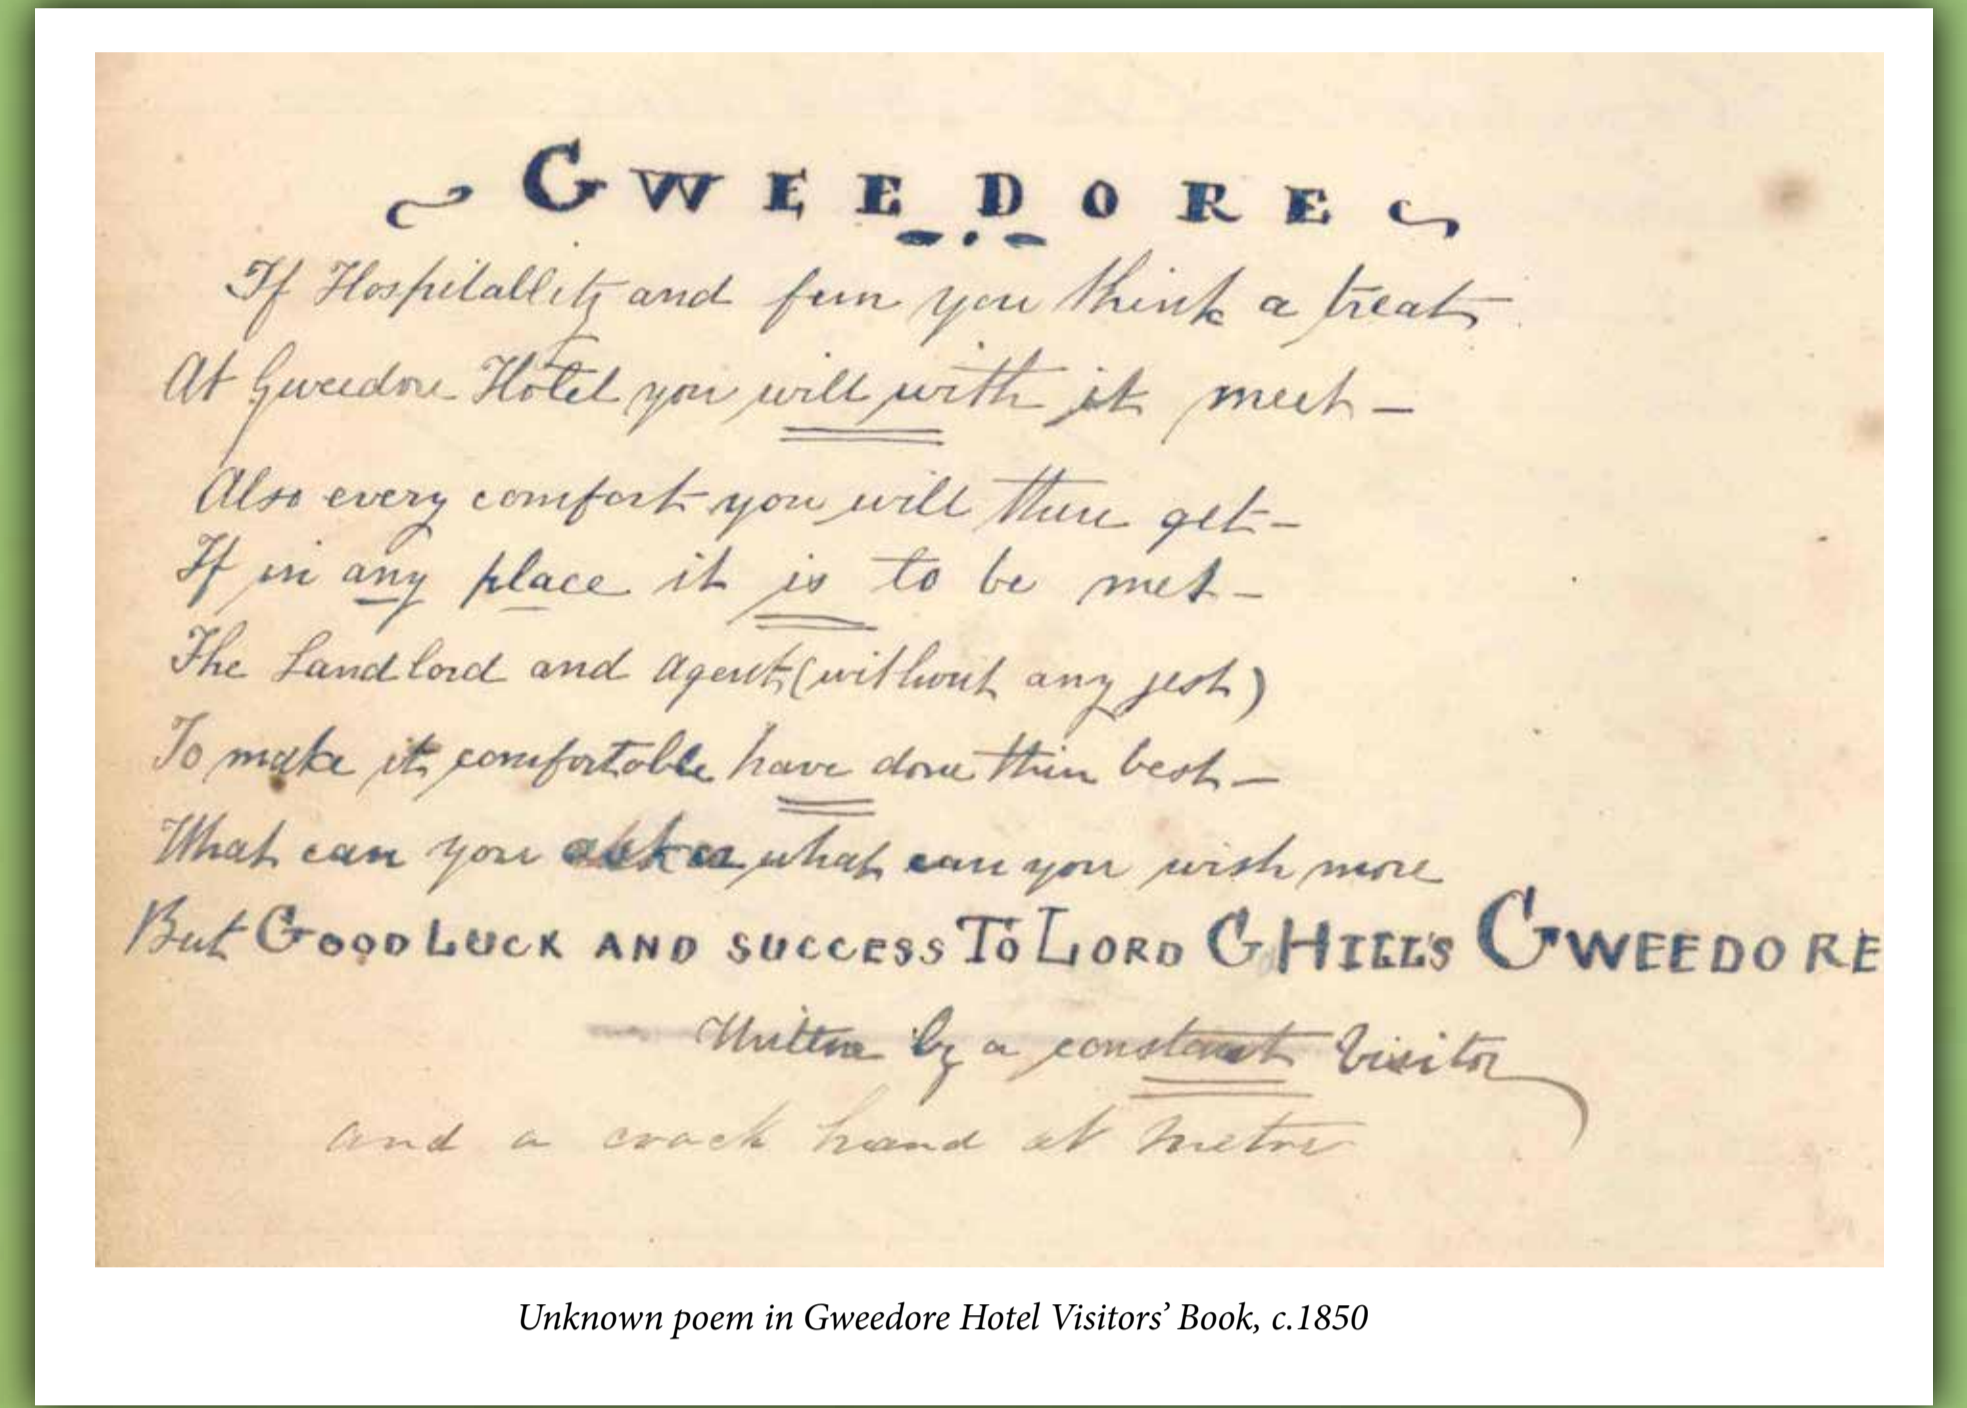 GWEEDORE
If Hospitallity and fun you think a treat
At Gweedore Hotel you will with it meet –
Also every comfort you will there get –
If in any place it is to be met –
The Landlord and Agent (without any jest)
To make it comfortable have done thier best –
What can you what can you wish more
But GOOD LUCK AND SUCCESS TO LORD G HILL'S GWEEDORE
Written by a constant Visitor
and a crack hand at metre
Unknown poem in Gweedore Hotel Visitors' Book, c.1850